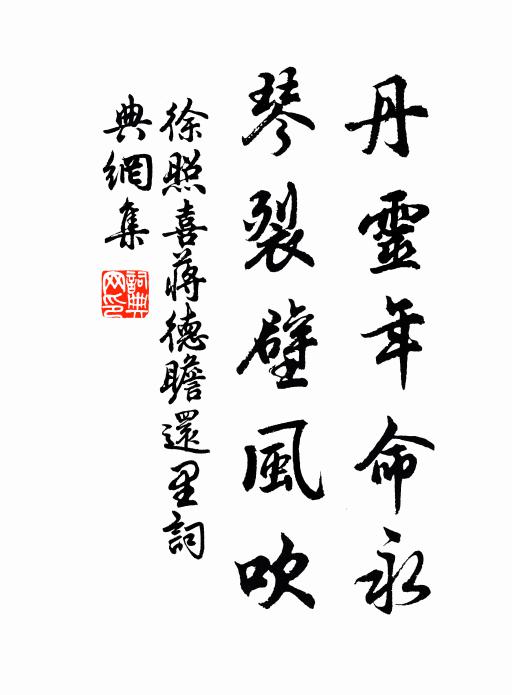 丹靈年命永
琴裂壁風吹
徐照喜蔣德瞻還里詞
典網集
詞典網印